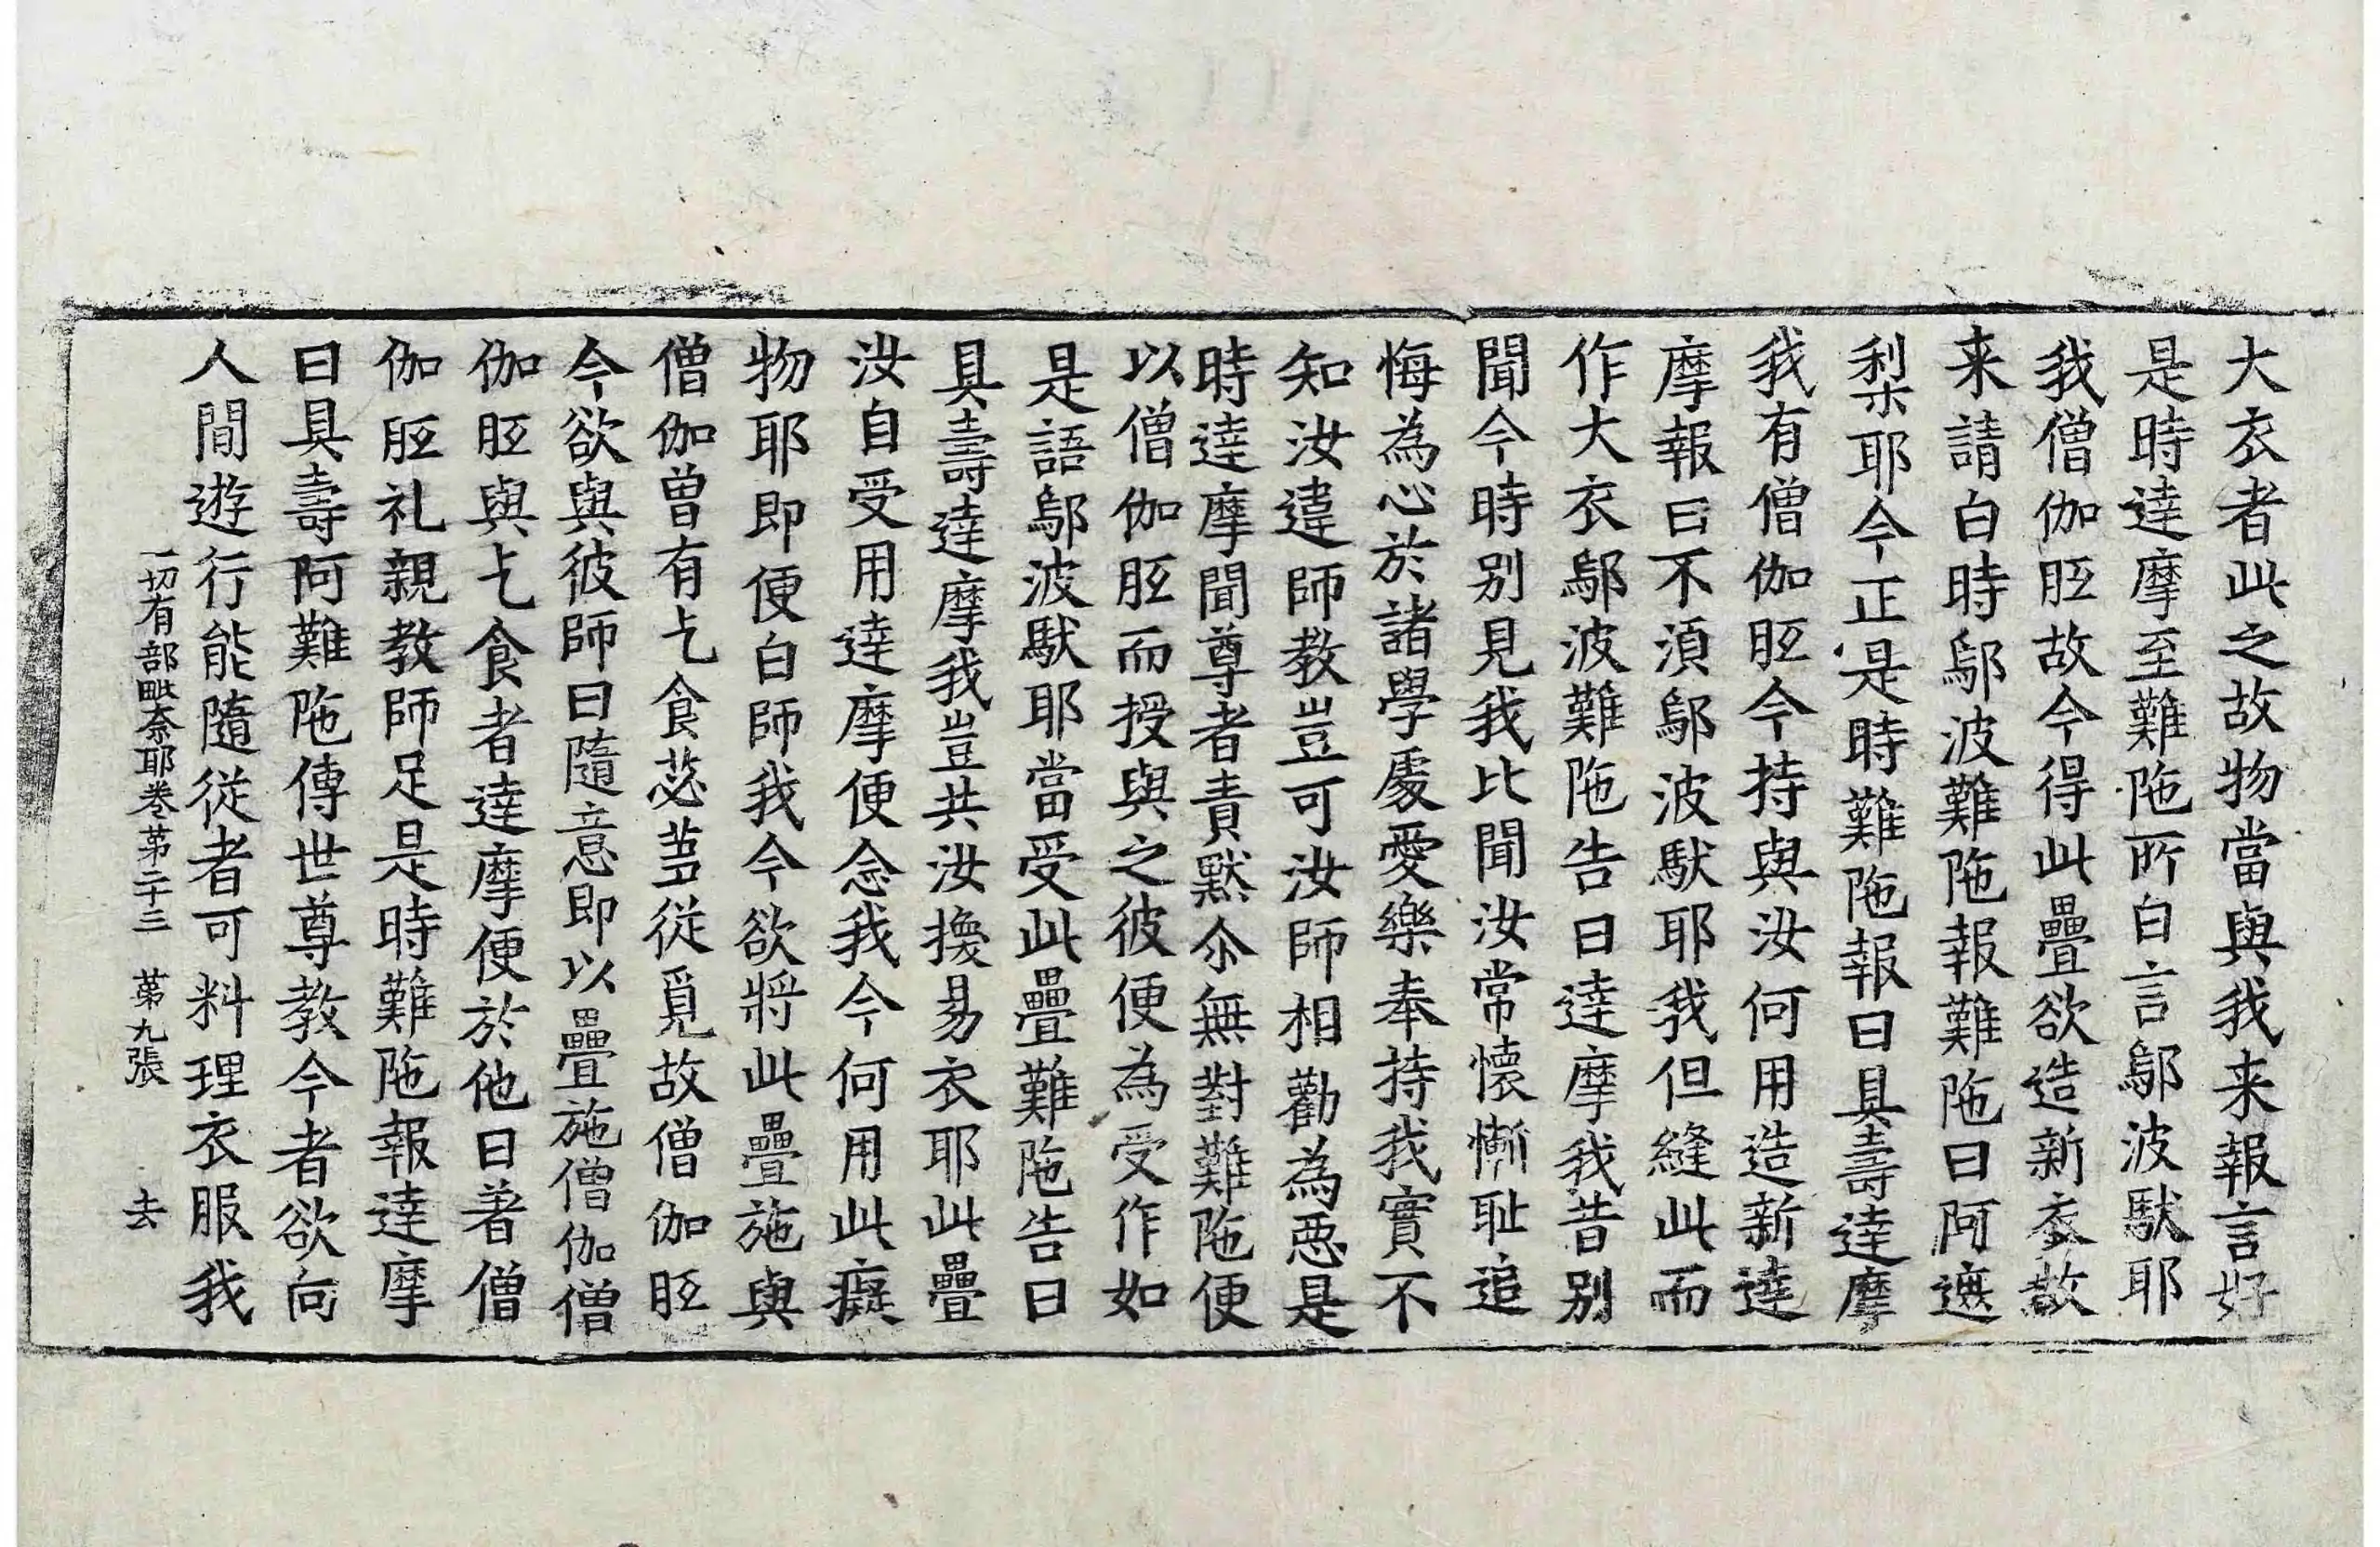 大衣者此之故物當與我来報言好
是時達摩至難陁所白言鄔波馱耶
我僧伽胝故今得此疊欲造新衣故
来請白時鄔波難陁報難陁曰阿遮
利耶今正是時難陁報曰具壽達摩
我有僧伽胝今持與汝何用造新達
摩報曰不湏鄔波馱耶我但縫此而
作大衣鄔波難陁告曰達摩我昔别
聞今時别見我比聞汝常懷慚耻追
悔為心於諸學處愛樂奉持我實不
知汝違師教豈可汝師相勸為惡是
時達摩聞尊者責默尒無對難陁便
以僧伽胝而授與之彼便為受作如
是語鄔波馱耶當受此疊難陁告曰
具壽達摩我豈共汝換易衣耶此疊
汝自受用達摩便念我今何用此癡
物耶即便白師我今欲將此疊施與
僧伽曾有乞食苾芻從覓故僧伽胝
今欲與彼師曰隨意即以疊施僧伽僧
伽胝與乞食者達摩便於他日著僧
伽胝礼親教師足是時難陁報達摩
曰具壽阿難陁傳世尊教今者欲向
人間遊行能隨從者可料理衣服我
一切有部毗奈耶卷苐二十三 苐九張 去